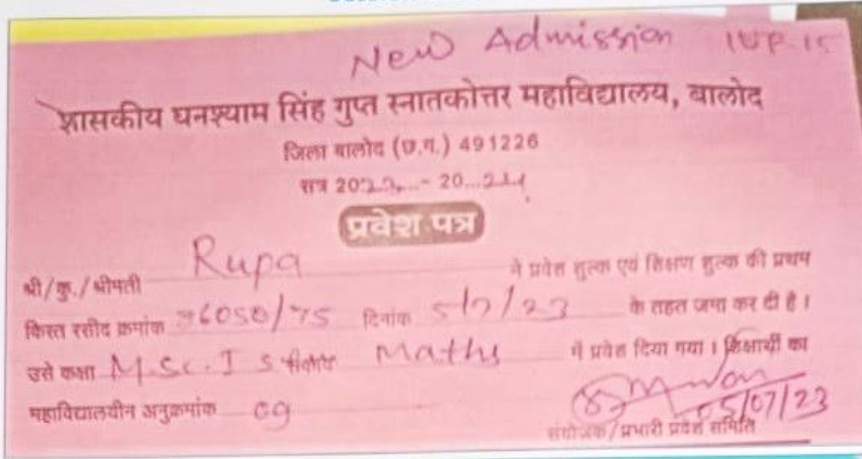 New Admission
शासकीय घनश्याम सिंह गुप्त स्नातकोत्तर महाविद्यालय, बालोद
जिला बालोद (छ.ग.) 491226
सत्र 2023 - 2024
प्रवेश पत्र
श्री/कु./श्रीमती Rupa ने प्रवेश शुल्क एवं शिक्षण शुल्क की प्रथम
किस्त रसीद क्रमांक 6050/75 दिनांक 5/7/23 के तहत जमा कर दी है।
उसे कक्षा M.Sc. I S Maths में प्रवेश दिया गया। शिक्षार्थी का
महाविद्यालयीन अनुक्रमांक 09
05/07/23
संयोजक/प्रभारी प्रवेश समिति